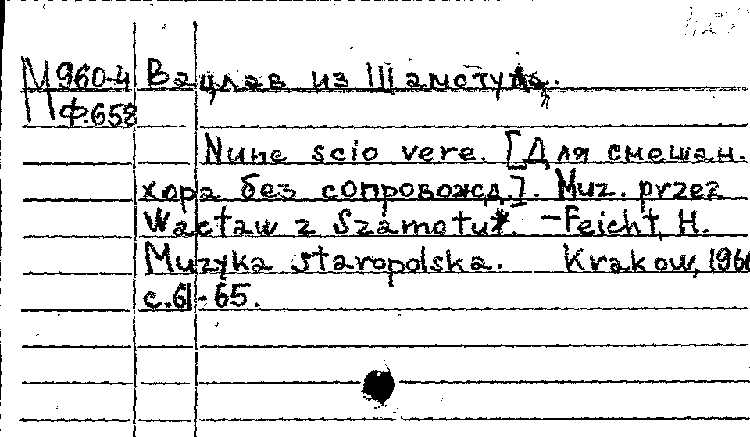 М 960-4 Вацлав из Шамотула.
Ф.658
Nunc scio vere. [Для смешан.
хора без сопровожд.]. Muz. przez
Wacław z Szamotuł. — Feicht, H.
Muzyka staropolska. Krakow, 196
с.61-65.